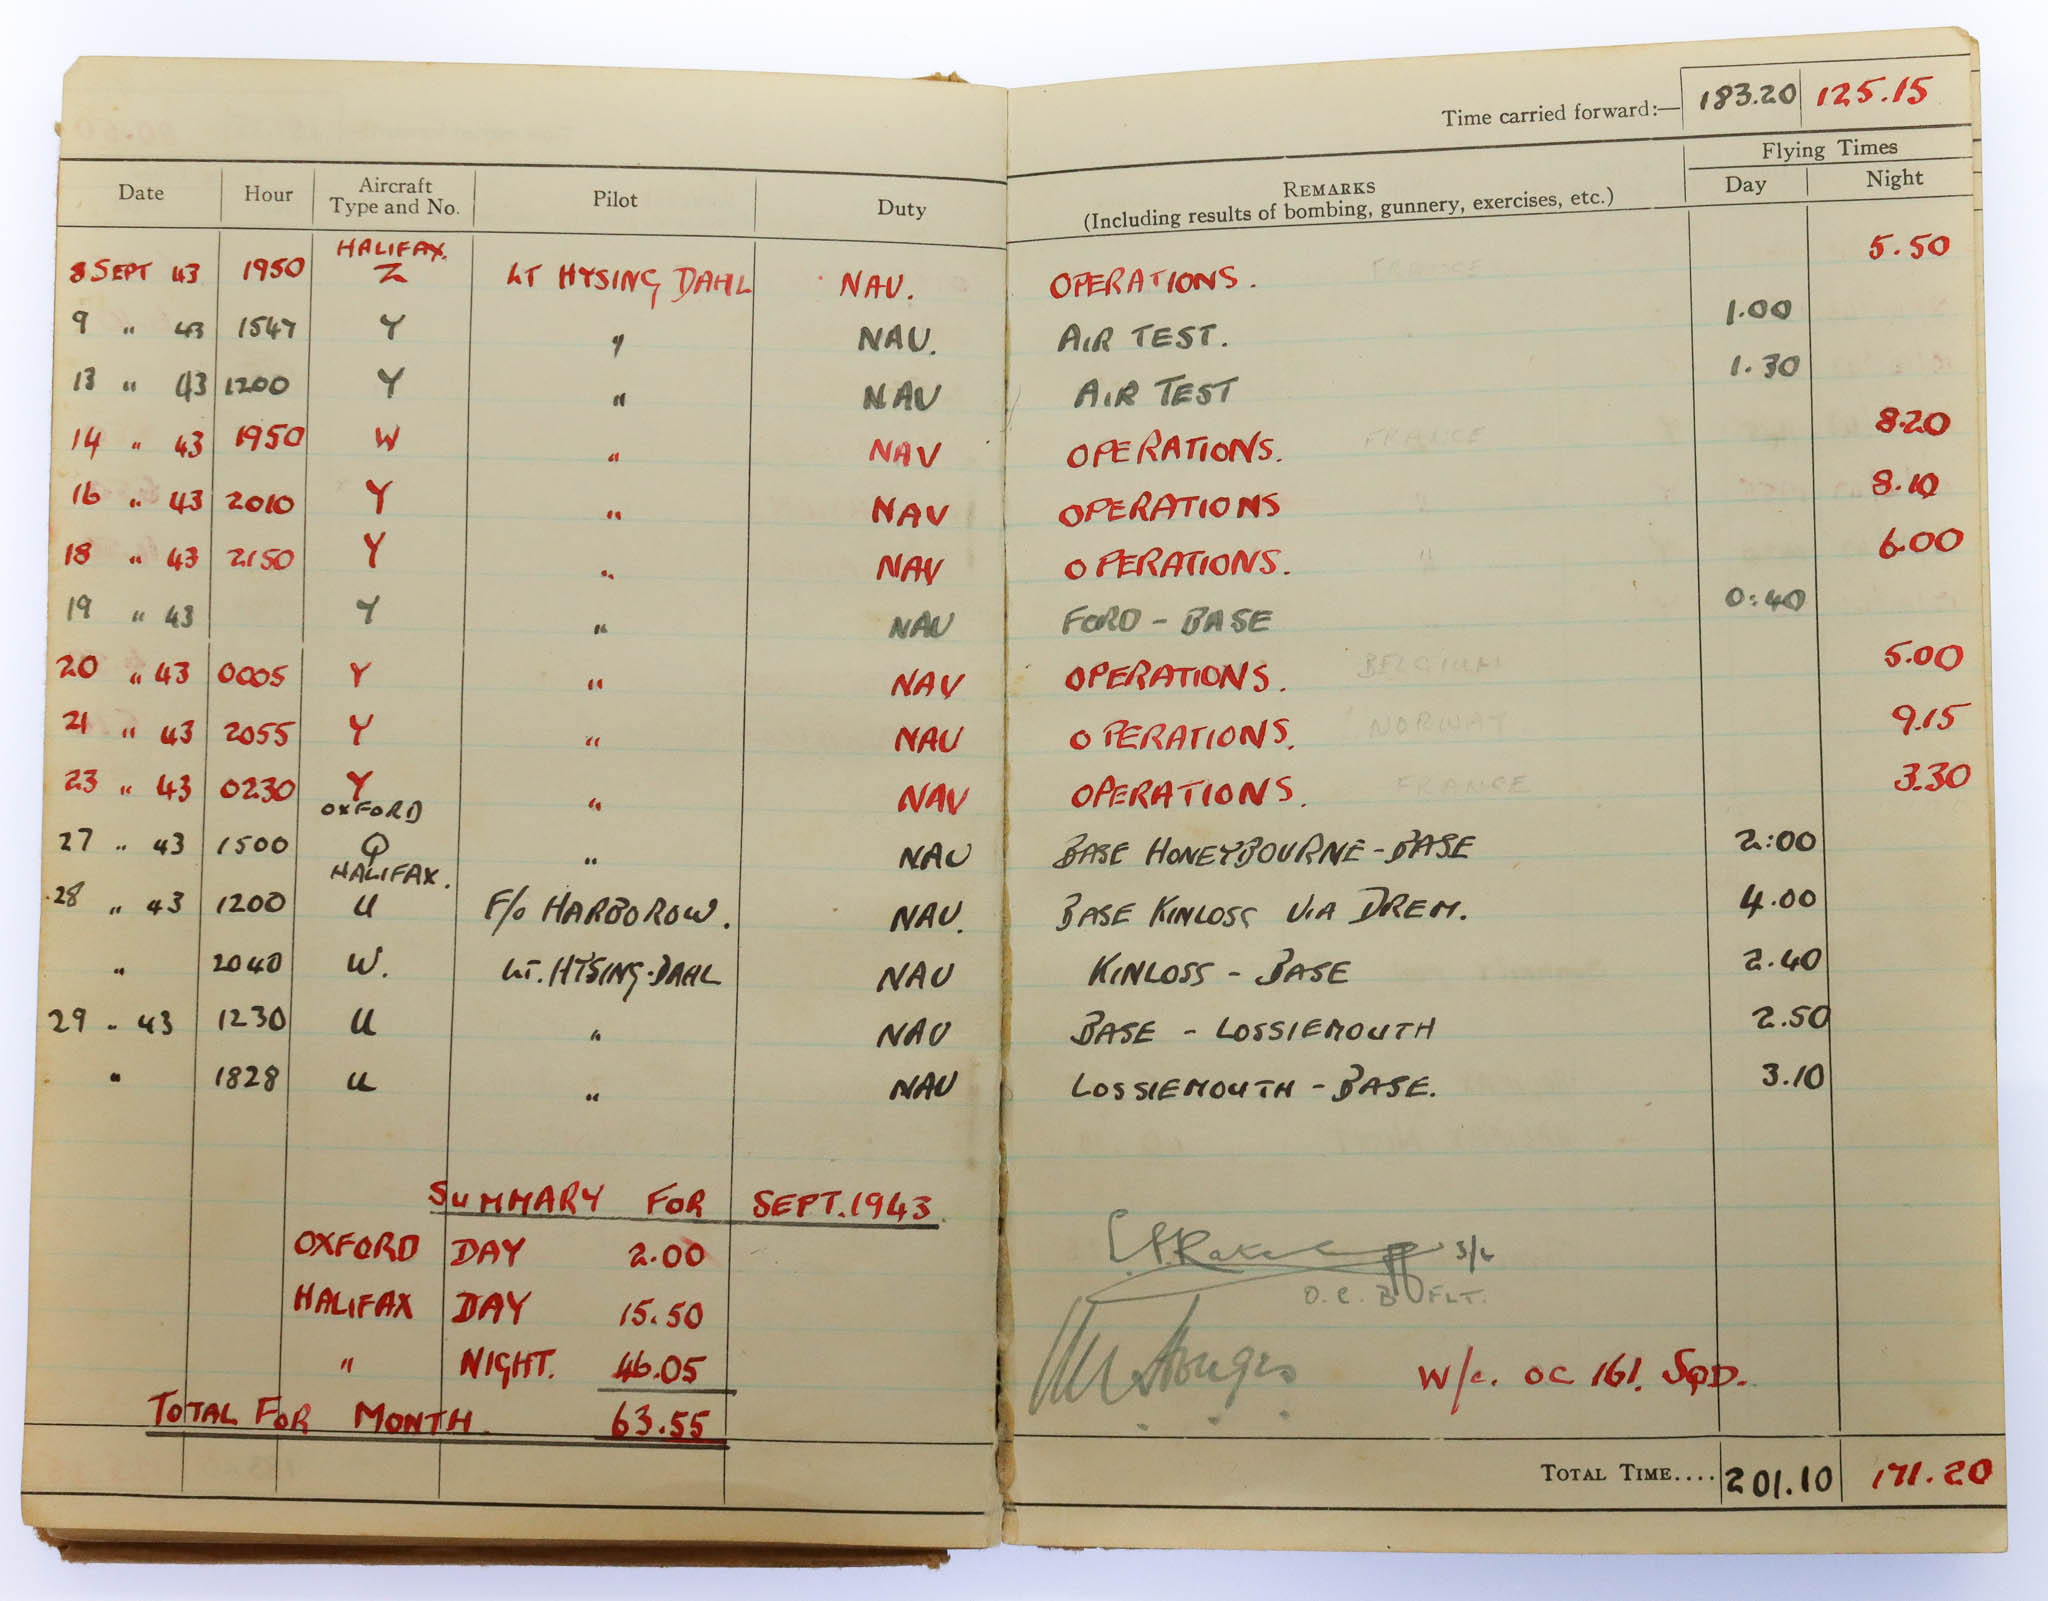 Time carried forward:— 183.20 125.15
Flying Times
Date Hour Aircraft Type and No. Pilot Duty REMARKS (Including results of bombing, gunnery, exercises, etc.) Day Night
8 SEPT 43 1950 HALIFAX. Z LT HYSING DAHL NAV. OPERATIONS. FRANCE 5.50
9 " 43 1547 Y " NAV. AIR TEST. 1.00
13 " 43 1200 Y " NAV AIR TEST 1.30
14 " 43 1950 W " NAV OPERATIONS. FRANCE 8.20
16 " 43 2010 Y " NAV OPERATIONS " 8.10
18 " 43 2150 Y " NAV OPERATIONS. " 6.00
19 " 43 Y " NAV FORD - BASE 0:40
20 " 43 0005 Y " NAV OPERATIONS. BELGIUM 5.00
21 " 43 2055 Y " NAV OPERATIONS. NORWAY 9.15
23 " 43 0230 Y " NAV OPERATIONS. FRANCE 3.30
27 " 43 1500 OXFORD Q " NAV BASE HONEYBOURNE - BASE 2:00
28 " 43 1200 HALIFAX. U F/O HARBOROW. NAV. BASE KINLOSS VIA DREM. 4.00
" 2040 W. LT. HYSING-DAHL NAV KINLOSS - BASE 2.40
29 " 43 1230 U " NAV BASE - LOSSIEMOUTH 2.50
" 1828 U " NAV LOSSIEMOUTH - BASE. 3.10
SUMMARY FOR SEPT. 1943
OXFORD DAY 2.00
HALIFAX DAY 15.50
" NIGHT. 46.05
TOTAL FOR MONTH 63.55
S/L
O.C. B FLT.
W/C. OC 161. SQD.
TOTAL TIME.... 201.10 171.20